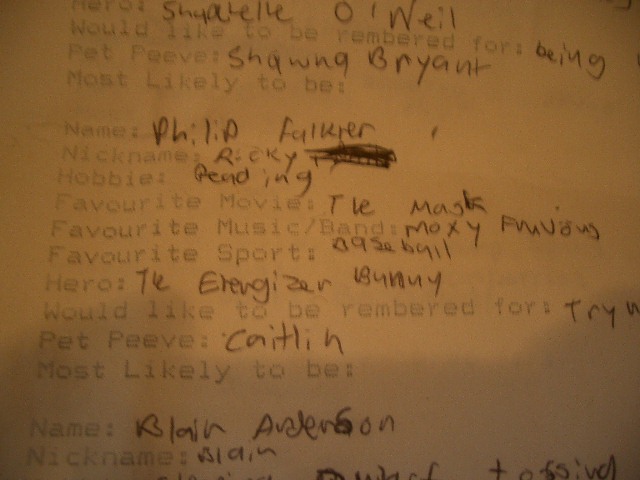 Hero: Shquielle O'Neil
Would like to be rembered for: being
Pet Peeve: Shawna Bryant
Most Likely to be:
Name: Philip Falkner
Nickname: Ricky
Hobbie: Reading
Favourite Movie: The Mask
Favourite Music/Band: Moxy Fruvous
Favourite Sport: Baseball
Hero: The Energizer Bunny
Would like to be rembered for: Try
Pet Peeve: Caitlin
Most Likely to be:
Name: Blain Anderson
Nickname: Blain
Dwarf tossing